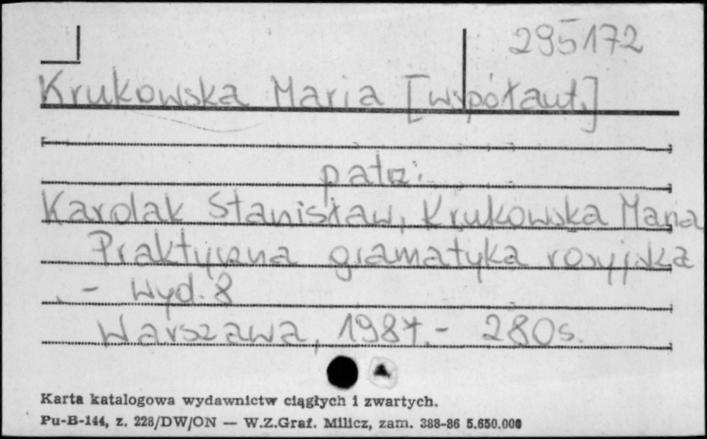 295172
Krukowska Maria [współaut.]
patrz:
Karolak Stanisław, Krukowska Maria
Praktyczna gramatyka rosyjska
. - Wyd. 8
Warszawa, 1987. - 280s.
Karta katalogowa wydawnictw ciągłych i zwartych.
Pu-B-144, z. 228/DW/ON — W.Z.Graf. Milicz, zam. 388-86 5.650.000